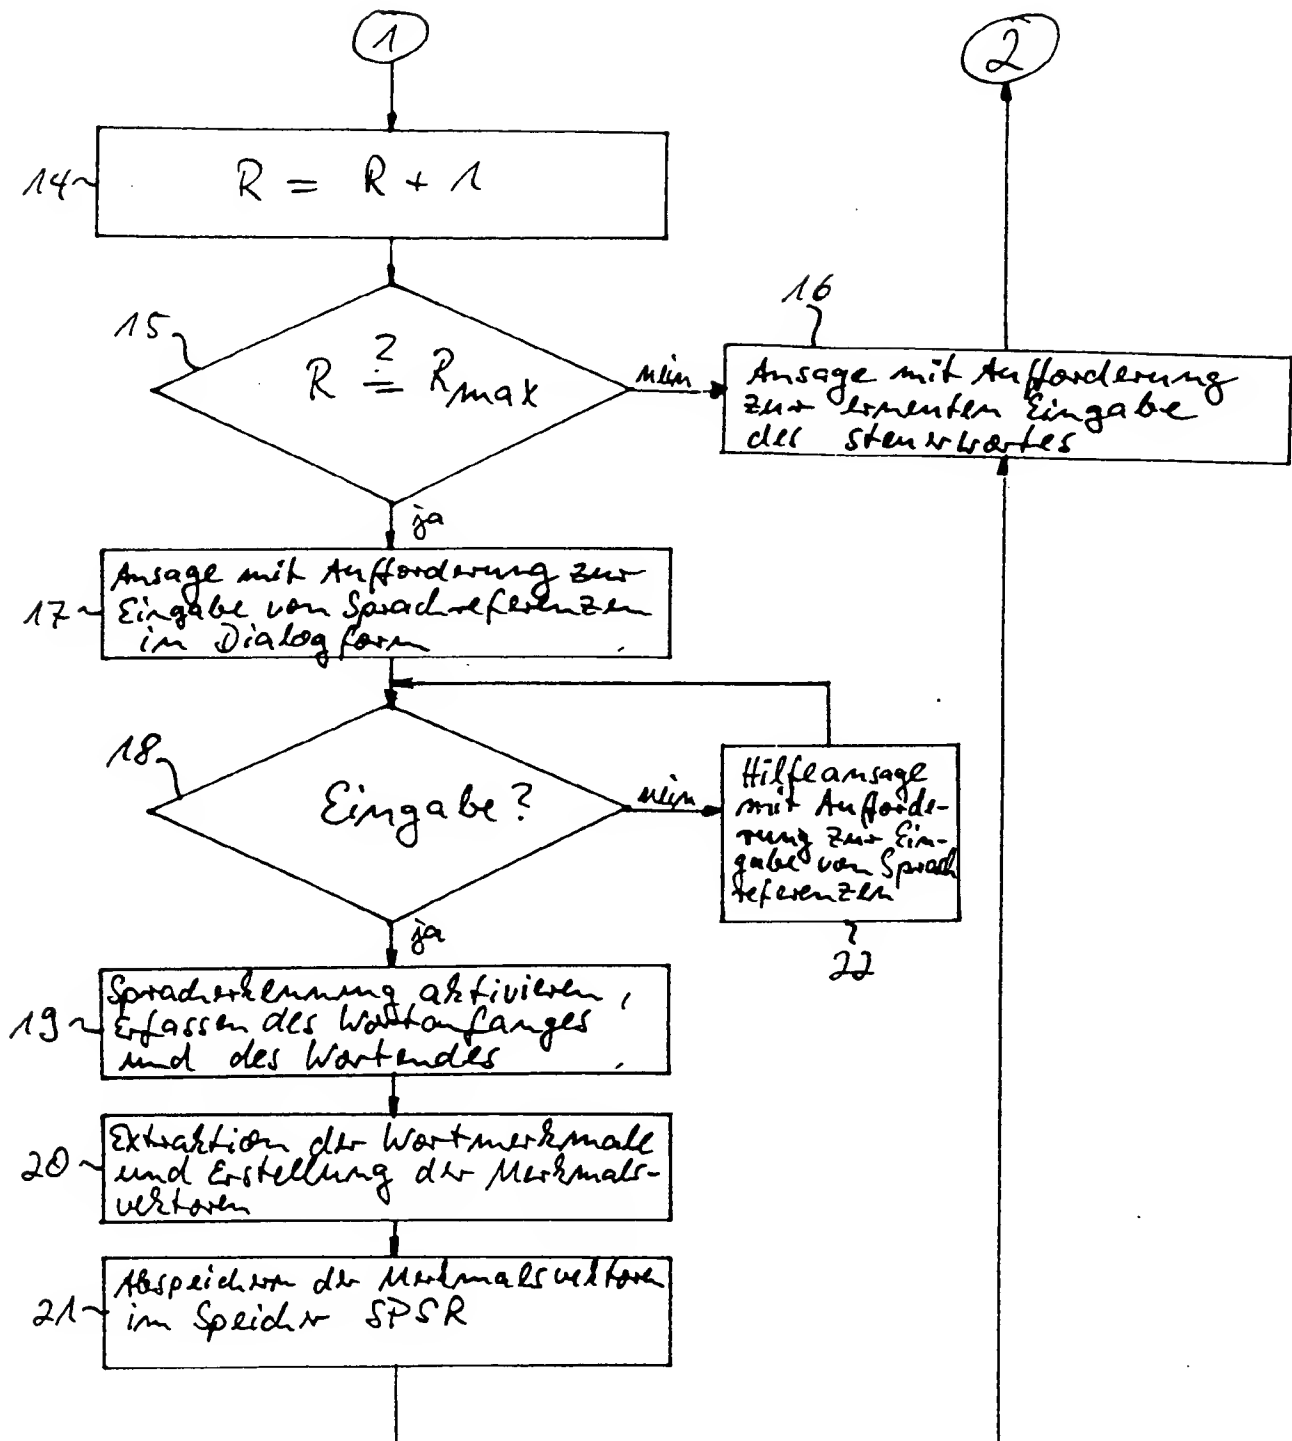 1
2
14
R = R + 1
15
R ≟ Rmax
nein
16
Ansage mit Aufforderung
zur erneuten Eingabe
des Steuerwortes
ja
17
Ansage mit Aufforderung zur
Eingabe von Sprachreferenzen
in Dialogform
18
Eingabe?
nein
Hilfeansage
mit Aufforde-
rung zur Ein-
gabe von Sprach
referenzen
22
ja
19
Spracherkennung aktivieren,
Erfassen des Wortanfanges
und des Wortendes
20
Extraktion der Wortmerkmale
und Erstellung der Merkmals-
vektoren
21
Abspeichern der Merkmalsvektoren
im Speicher SPSR